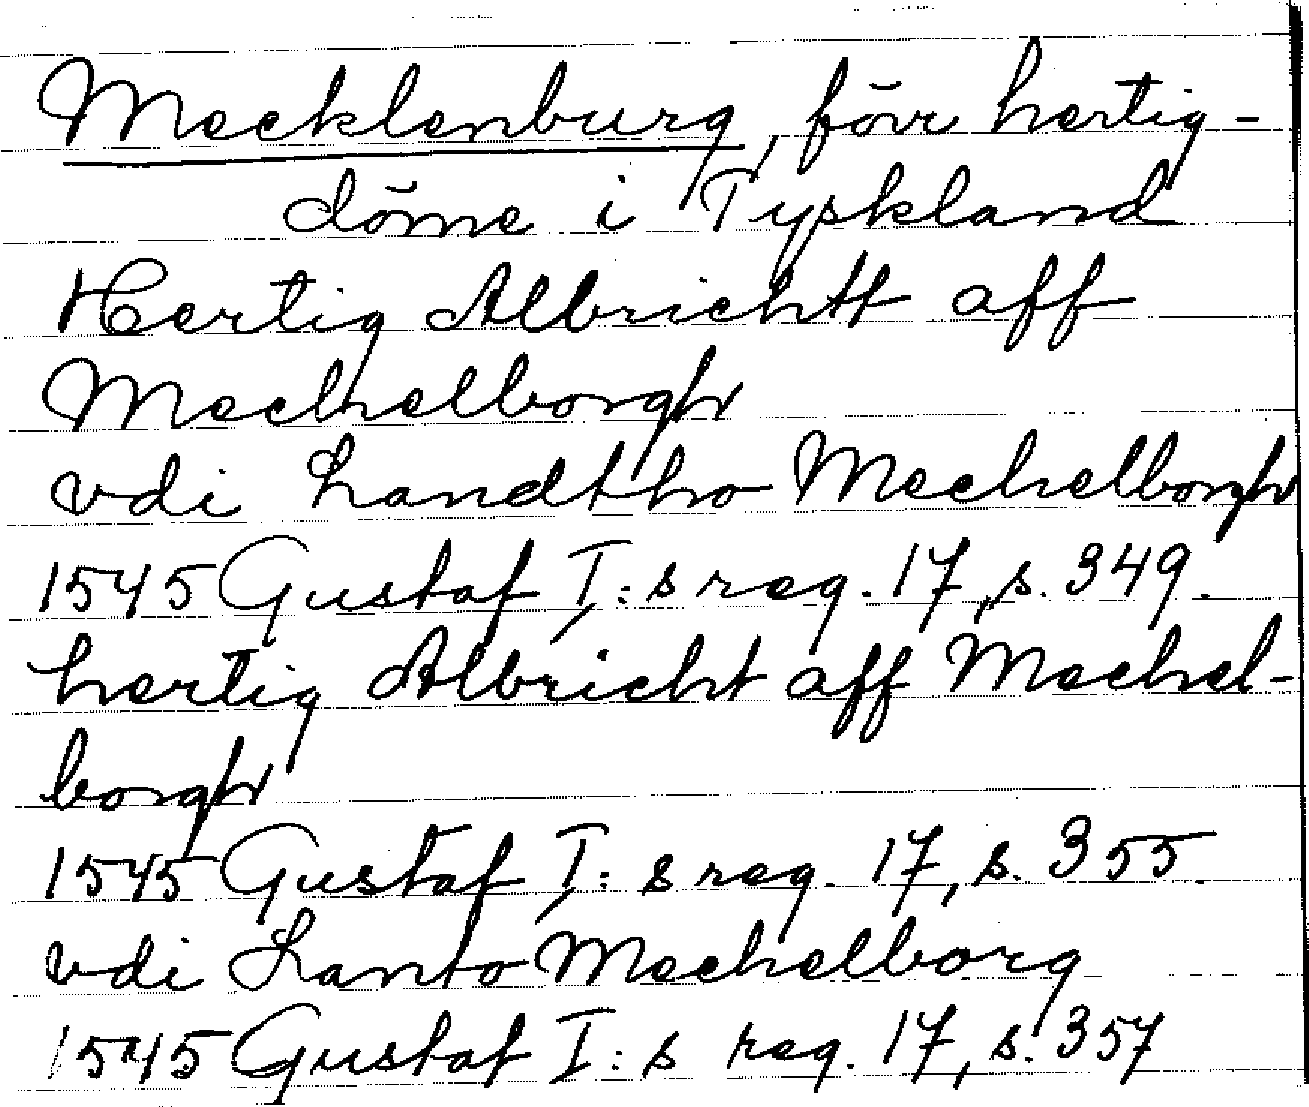 Mecklenburg, förr hertig-
döme i Tyskland
Hertig Albrichtt aff
Mechelborgh
vdi Landtho Mechelborgh
1545 Gustaf I:s reg. 17, s. 349.
hertig Albricht aff Mechel-
borgh
1545 Gustaf I:s reg. 17, s. 355.
vdi Lanto Mechelborg
1545 Gustaf I:s reg. 17, s. 357